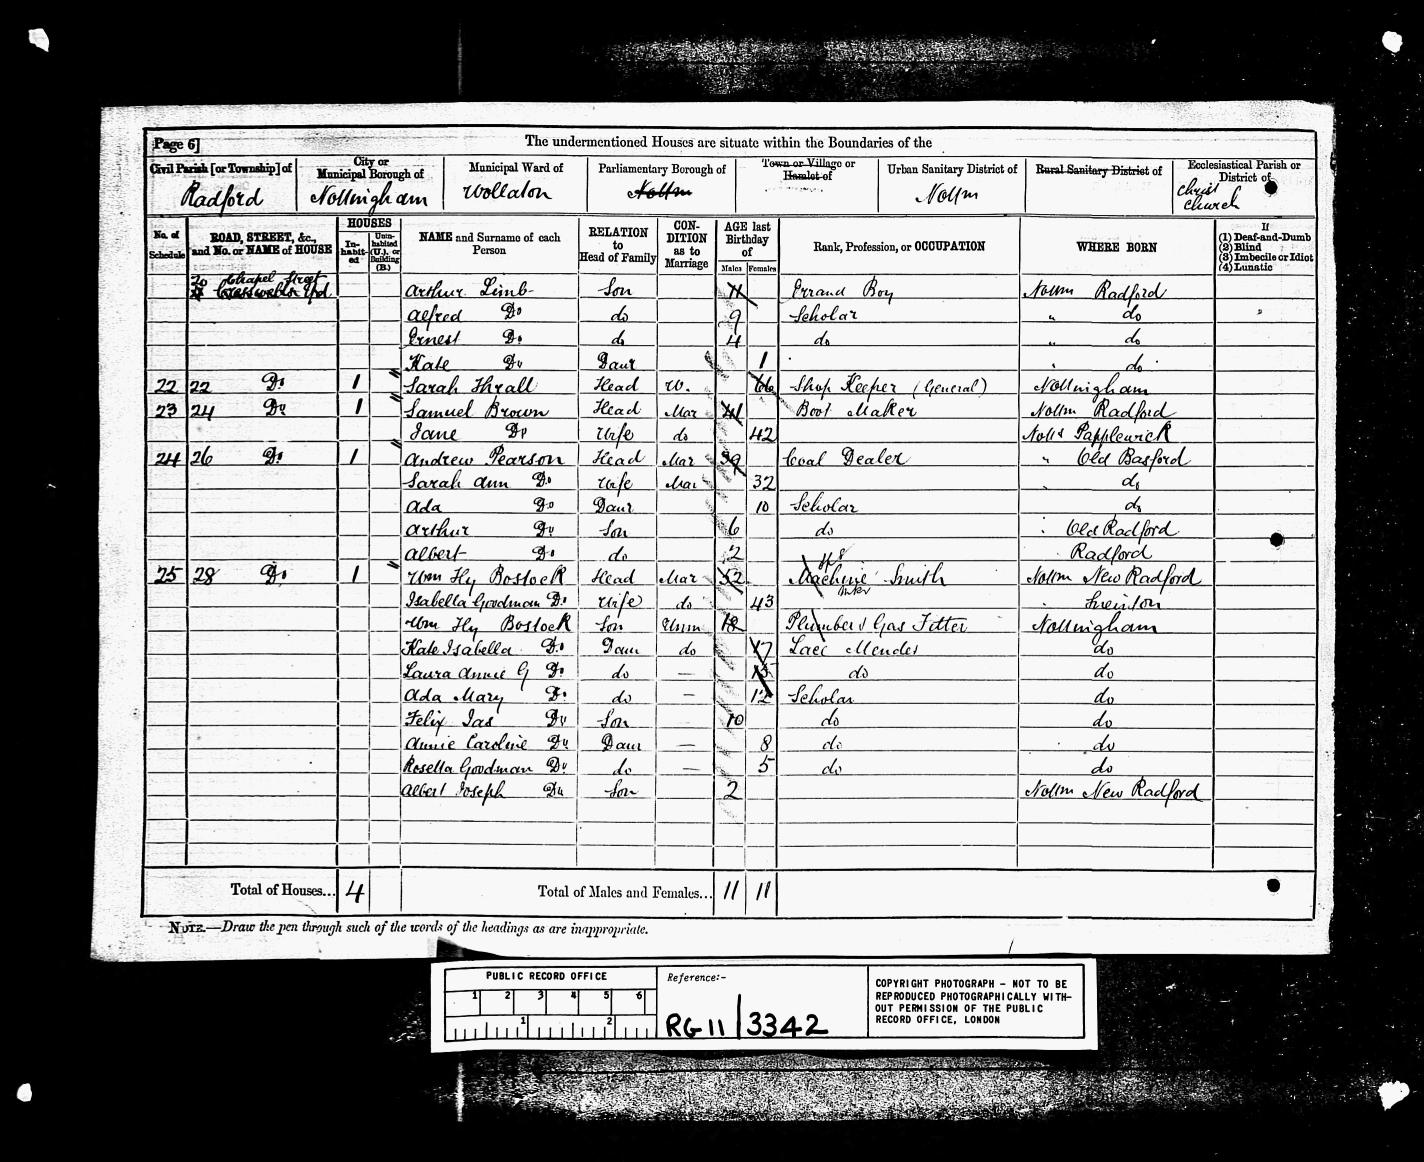 Page 6] The undermentioned Houses are situate within the Boundaries of the
Civil Parish [or Township] of City or Municipal Borough of Municipal Ward of Parliamentary Borough of Town or Village or Hamlet of Urban Sanitary District of Rural Sanitary District of Ecclesiastical Parish or District of
Radford Nottingham Wollaton Nottm Nottm Christ Church
No. of Schedule ROAD, STREET, &c., and No. or NAME of HOUSE HOUSES In-habit-ed Unin-habited (U.), or Building (B.) NAME and Surname of each Person RELATION to Head of Family CON-DITION as to Marriage AGE last Birthday of Males Females Rank, Profession, or OCCUPATION WHERE BORN If (1) Deaf-and-Dumb (2) Blind (3) Imbecile or Idiot (4) Lunatic
20 Chapel Street
Arthur Limb Son 11 Errand Boy Nottm Radford
Alfred Do do 9 Scholar " do
Ernest Do do 4 do " do
Kate Do Daur 1 " do
22 22 Do 1 Sarah Thrall Head W. 66 Shop Keeper (General) Nottingham
23 24 Do 1 Samuel Brown Head Mar 41 Boot Maker Nottm Radford
Jane Do Wife do 42 Notts Papplewick
24 26 Do 1 Andrew Pearson Head Mar 39 Coal Dealer " Old Basford
Sarah Ann Do Wife Mar 32 " do
Ada Do Daur 10 Scholar do
Arthur Do Son 6 do " Old Radford
Albert Do do 2 Radford
25 28 Do 1 Wm Hy Bostock Head Mar 52 Machine Smith Nottm New Radford
Isabella Goodman Do Wife do 43 " Sneinton
Wm Hy Bostock Son Unm 18 Plumber & Gas Fitter Nottingham
Kate Isabella Do Daur do 17 Lace Mender do
Laura Annie G Do do — 15 do do
Ada Mary Do do — 12 Scholar do
Felix Jas Do Son 10 do do
Annie Caroline Do Daur — 8 do do
Rosella Goodman Do do — 5 do do
Albert Joseph Do Son 2 Nottm New Radford
Total of Houses... 4 Total of Males and Females... 11 11
NOTE.—Draw the pen through such of the words of the headings as are inappropriate.
PUBLIC RECORD OFFICE
1 2 3 4 5 6
1 2
Reference:-
RG 11 / 3342
COPYRIGHT PHOTOGRAPH - NOT TO BE
REPRODUCED PHOTOGRAPHICALLY WITH-
OUT PERMISSION OF THE PUBLIC
RECORD OFFICE, LONDON